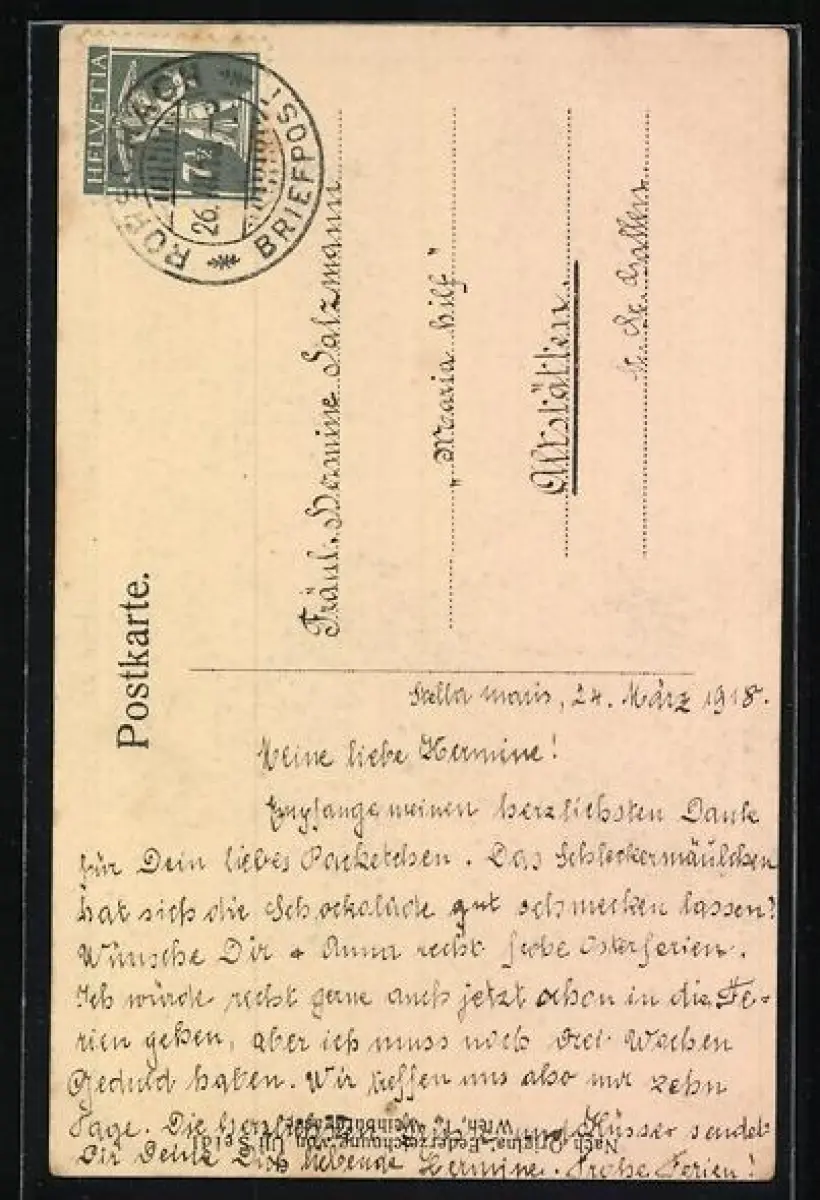 HELVETIA
7½
RORSCHACH
26.
BRIEFPOST
Postkarte.
Fräul. Hermine Salzmann
„Maria Hilf“
Altstätten.
St. Gallen
Stella maris, 24. März 1918.
Meine liebe Hermine!
Empfange meinen herzlichsten Dank
für Dein liebes Packetchen. Das Schleckermäulchen
hat sich die Schockolade gut schmecken lassen!
Wünsche Dir & Anna recht frohe Osterferien.
Ich würde recht gerne auch jetzt schon in die Fe-
rien gehen, aber ich muss noch drei Wochen
Geduld haben. Wir treffen uns also nur zehn
Tage. Die herzl und Küsse sendet
Dir Deine Dich liebende Hermine. Frohe Ferien!
Nach Original-Federzeichnung von Ulf Seidl
Wien, I., Weinburggasse